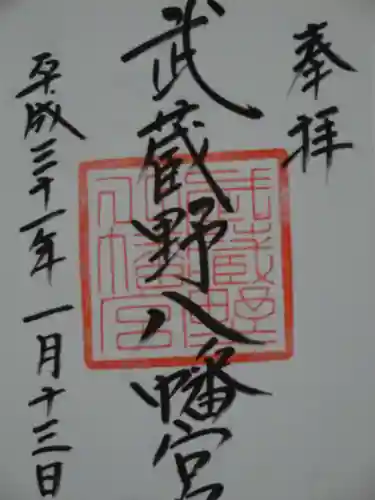 奉拝
武蔵野八幡宮
武蔵野
八幡宮
平成三十一年一月十三日